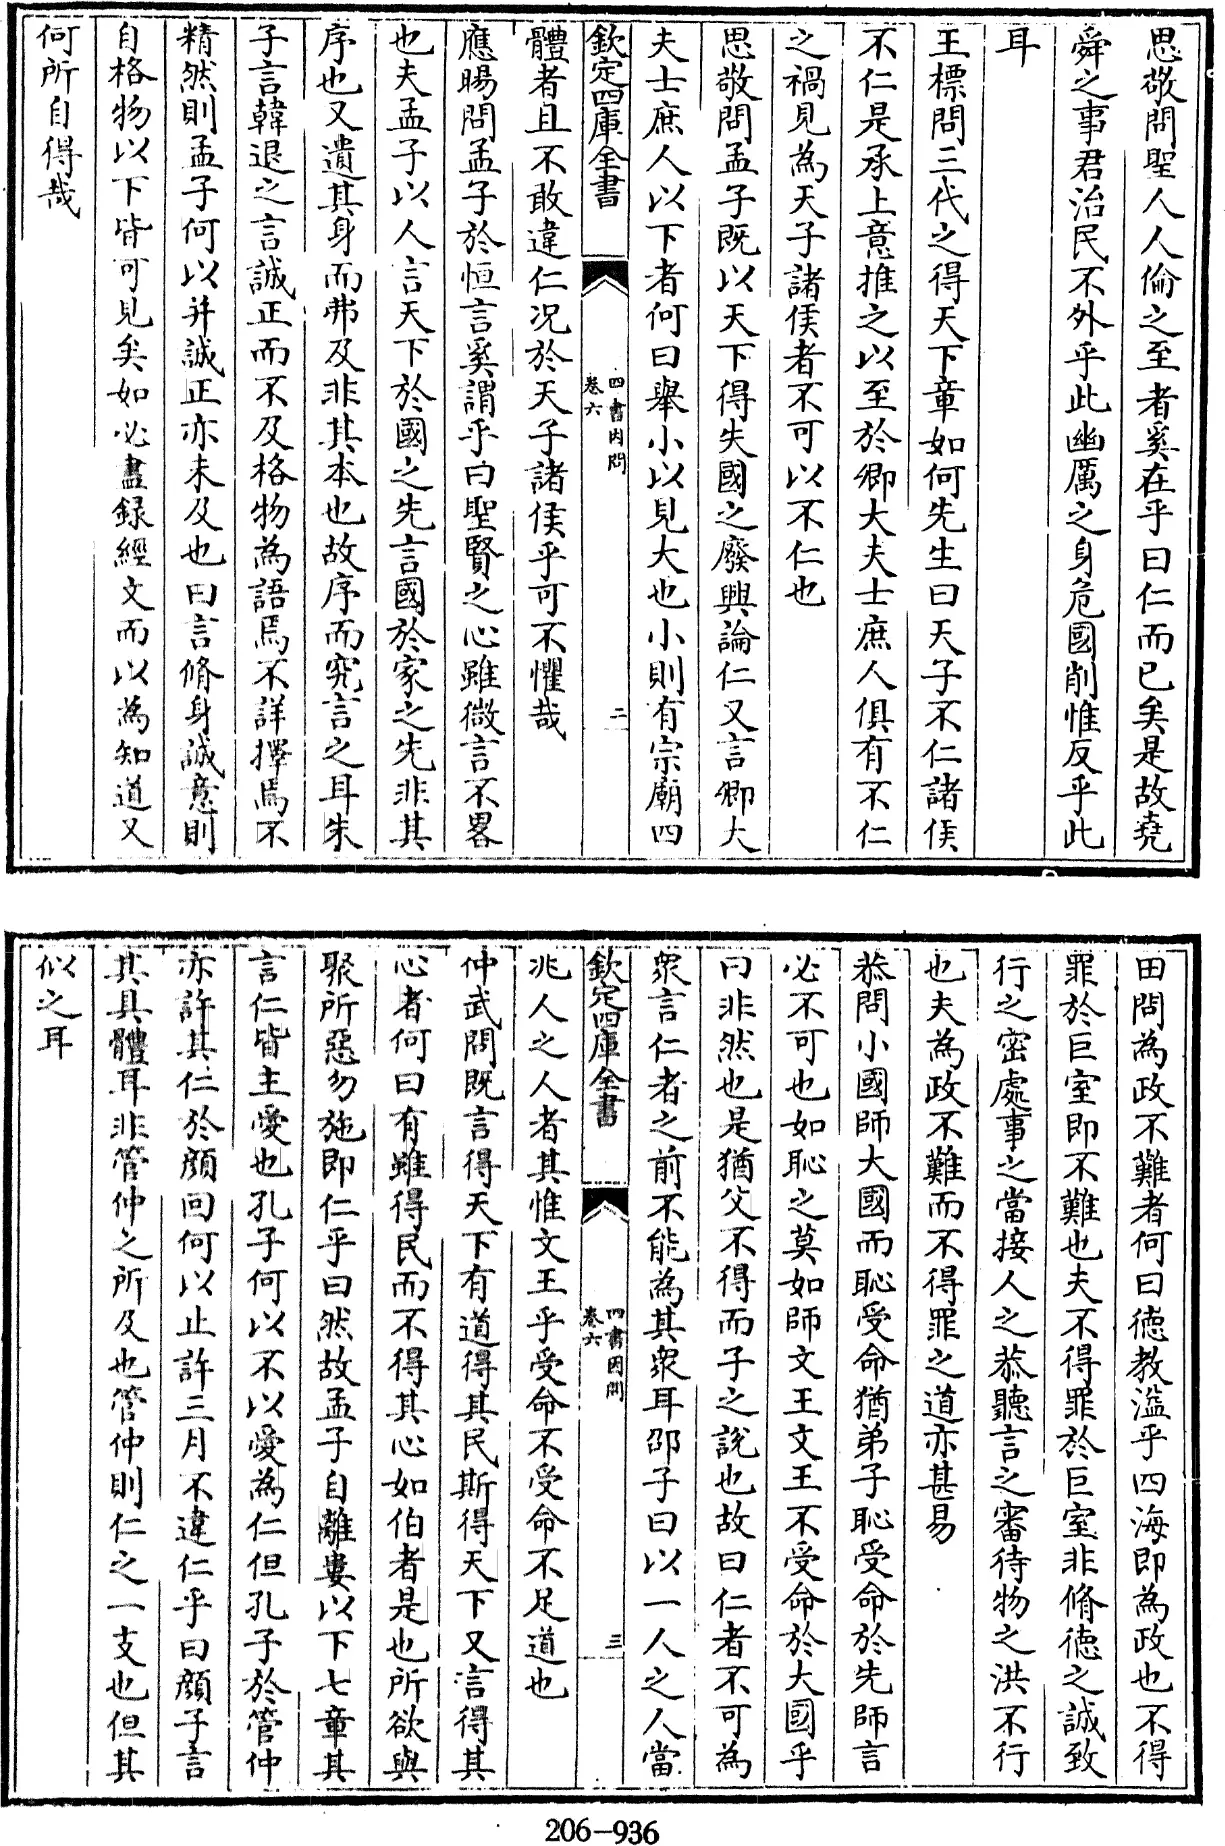 思敬問聖人人倫之至者奚在乎曰仁而已矣是故堯
舜之事君治民不外乎此幽厲之身危國削惟反乎此
耳
王標問三代之得天下章如何先生曰天子不仁諸侯
不仁是承上意推之以至於卿大夫士庶人俱有不仁
之禍見為天子諸侯者不可以不仁也
思敬問孟子既以天下得失國之廢興論仁又言卿大
夫士庶人以下者何曰舉小以見大也小則有宗廟四
欽定四庫全書
四書因問
卷六
二
體者且不敢違仁况於天子諸侯乎可不懼哉
應暘問孟子於恒言奚謂乎曰聖賢之心雖微言不畧
也夫孟子以人言天下於國之先言國於家之先非其
序也又遺其身而弗及非其本也故序而究言之耳朱
子言韓退之言誠正而不及格物為語焉不詳擇焉不
精然則孟子何以并誠正亦未及也曰言脩身誠意則
自格物以下皆可見矣如必盡録經文而以為知道又
何所自得哉
田問為政不難者何曰徳教溢乎四海即為政也不得
罪於巨室即不難也夫不得罪於巨室非脩徳之誠致
行之密處事之當接人之恭聽言之審待物之洪不行
也夫為政不難而不得罪之道亦甚易
恭問小國師大國而恥受命猶弟子恥受命於先師言
必不可也如恥之莫如師文王文王不受命於大國乎
曰非然也是猶父不得而子之說也故曰仁者不可為
衆言仁者之前不能為其衆耳邵子曰以一人之人當
欽定四庫全書
四書因問
卷六
三
兆人之人者其惟文王乎受命不受命不足道也
仲武問既言得天下有道得其民斯得天下又言得其
心者何曰有雖得民而不得其心如伯者是也所欲與
聚所惡勿施即仁乎曰然故孟子自離婁以下七章其
言仁皆主愛也孔子何以不以愛為仁但孔子於管仲
亦許其仁於顔回何以止許三月不違仁乎曰顔子言
其具體耳非管仲之所及也管仲則仁之一支也但其
似之耳
206-936